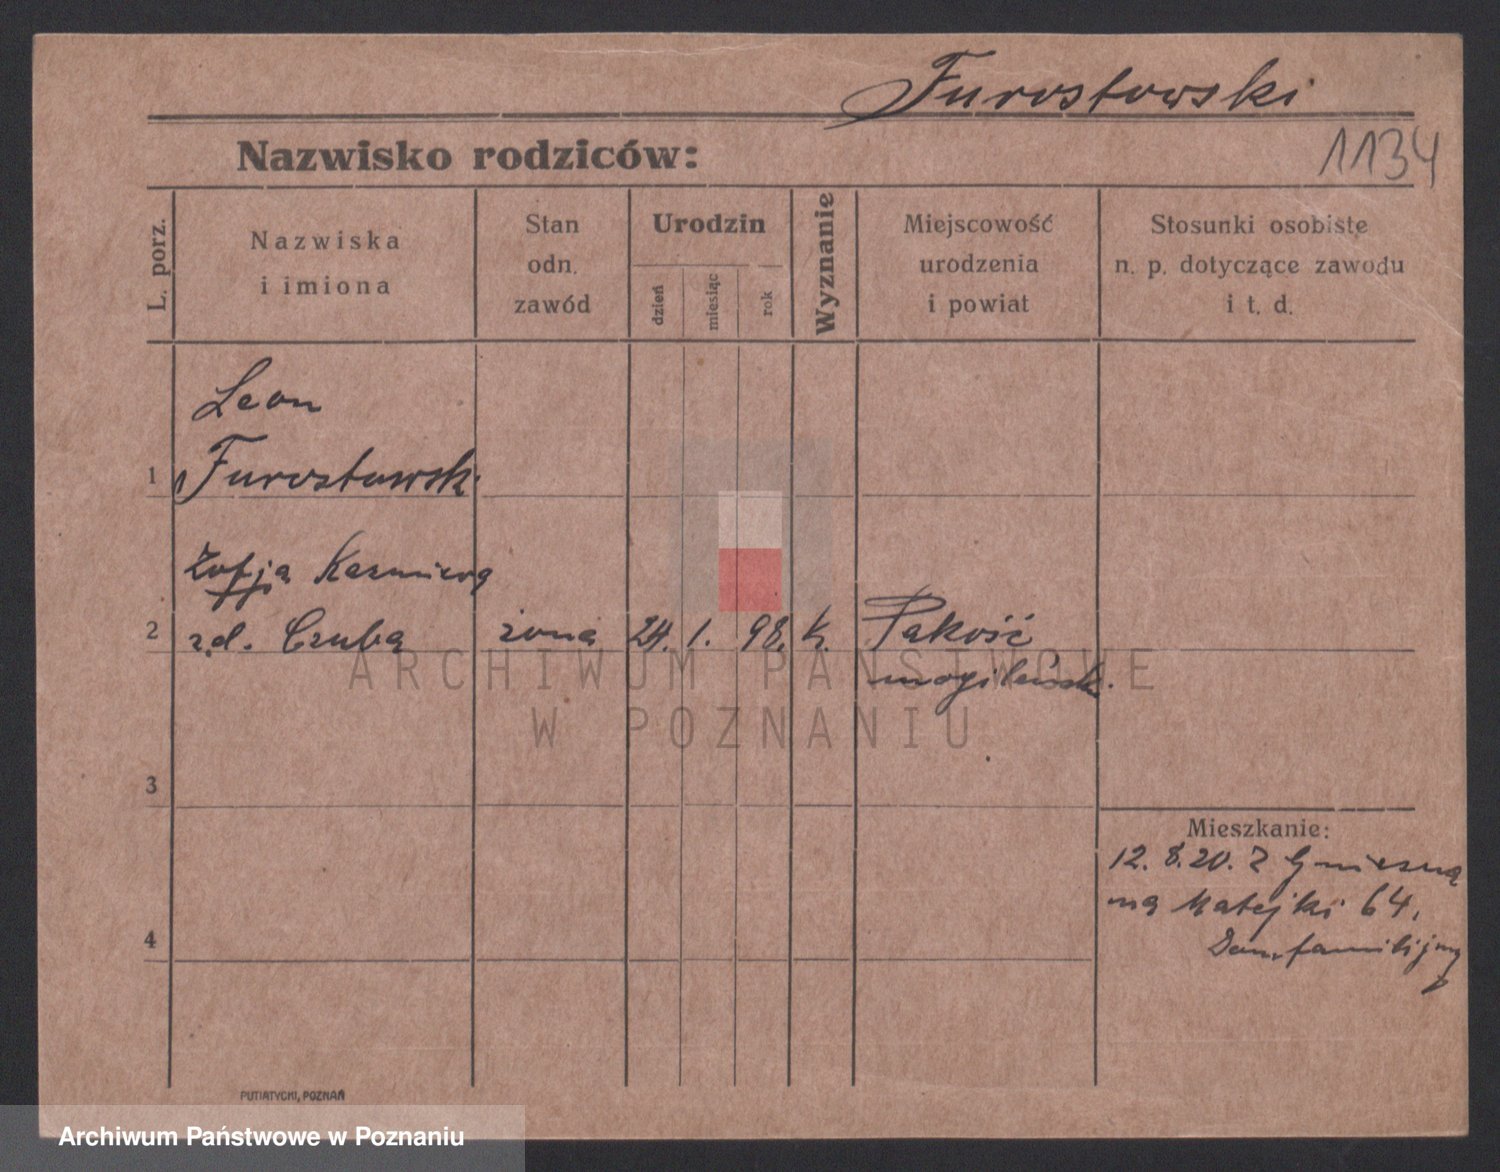 Furostowski
1134
Nazwisko rodziców:
L. porz.
Nazwiska
i imiona
Stan
odn.
zawód
Urodzin
dzień
miesiąc
rok
Wyznanie
Miejscowość
urodzenia
i powiat
Stosunki osobiste
n. p. dotyczące zawodu
i t. d.
Leon
1 Furostowski
Zofja Kazmiera
2 zd. Czuba żona 24. 1. 98. k. Pakość
mogileńsk.
ARCHIWUM PAŃSTWOWE
W POZNANIU
3
Mieszkanie:
12. 8. 20. z Gniezna
na Matejki 64,
4
Dom familijny
PUTIATYCKI, POZNAŃ
Archiwum Państwowe w Poznaniu